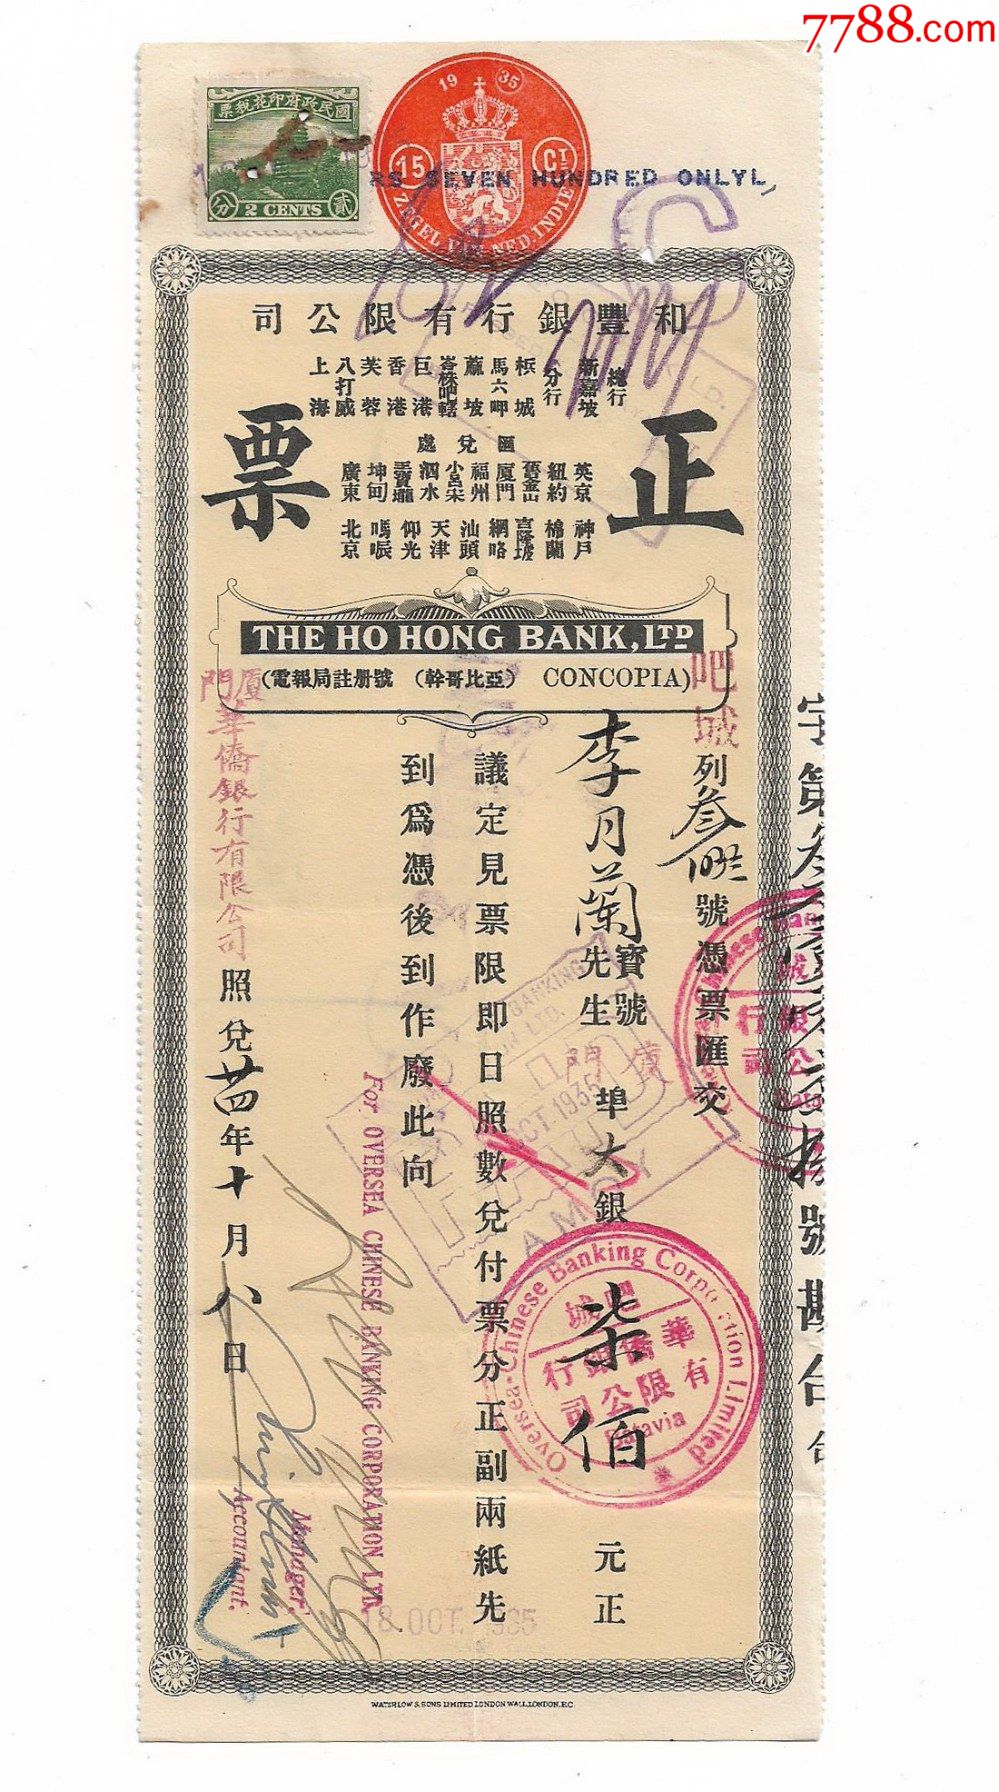 7788.com
國民政府印花稅票
分 2 CENTS 貳
1935
15 CT
ZEGEL VAN NED. INDIE
RS SEVEN HUNDRED ONLYL
和豐銀行有限公司
總行
新嘉坡
分行
梹城
馬六呷
蔴坡
峇株吧轄
巨港
香港
芙蓉
八打威
上海
正票
匯兌處
英京
紐約
舊金山
廈門
福州
小呂宋
泗水
三寶壠
坤甸
廣東
神戶
棉蘭
吉隆坡
網咯
汕頭
天津
仰光
嗎㖘
北京
THE HO HONG BANK, LTD
(電報局註册號 (幹哥比亞) CONCOPIA)
字第
號勘合
吧城列叁號憑票匯交
李月蘭寶號先生
廈門埠大銀柒佰元正
議定見票限即日照數兌付票分正副兩紙先
到爲憑後到作廢此向
廈門華僑銀行有限公司照兌
廿四年十月八日
For OVERSEA CHINESE BANKING CORPORATION LTD.
Manager.
Accountant.
Oversea-Chinese Banking Corporation Limited
吧城
華僑銀行有限公司
Batavia
BANKING
LTD.
廈門
OCT. 1935
PAID
AMOY
18. OCT. 1935
WATERLOW & SONS LIMITED LONDON WALL, LONDON, E.C.